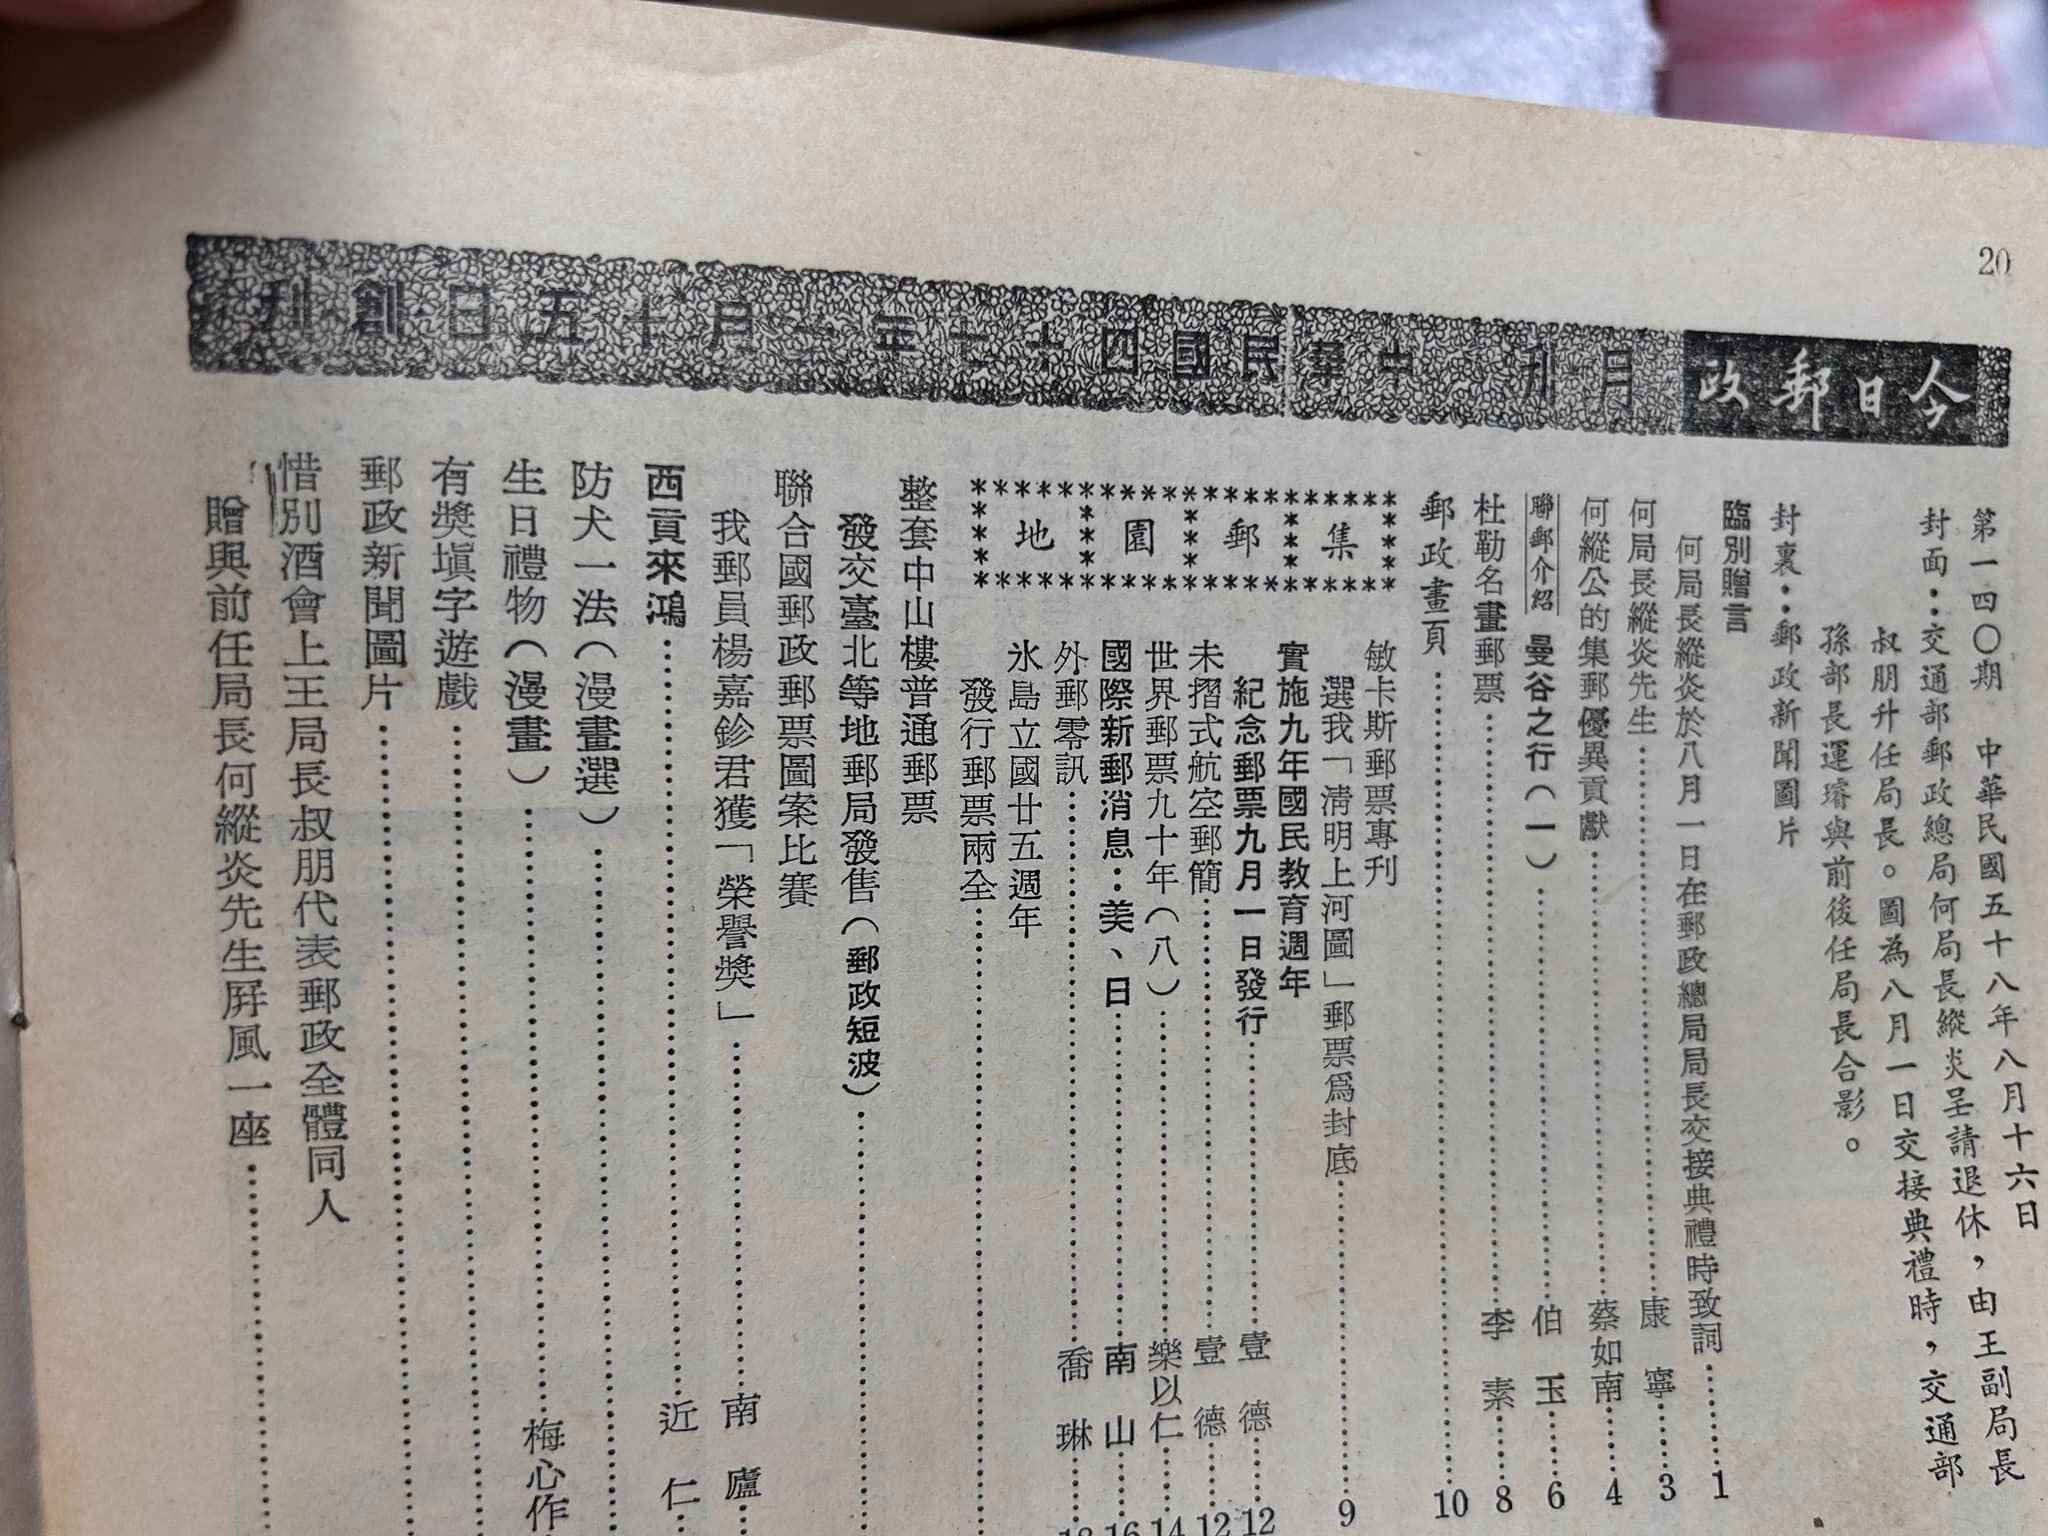 20
今日郵政
月刊
中華民國四十七年一月十五日創刊
第一四〇期 中華民國五十八年八月十六日
封面：交通部郵政總局何局長縱炎呈請退休，由王副局長
叔朋升任局長。圖為八月一日交接典禮時，交通部
孫部長運璿與前後任局長合影。
封裏：郵政新聞圖片
臨別贈言
何局長縱炎於八月一日在郵政總局局長交接典禮時致詞……1
何局長縱炎先生……康 寧……3
何縱公的集郵優異貢獻……蔡如南……4
聯郵介紹 曼谷之行（一）……伯 玉……6
杜勒名畫郵票……李 素……8
郵政畫頁……10
集郵園地
敏卡斯郵票專刊
選我「清明上河圖」郵票爲封底……9
實施九年國民教育週年
紀念郵票九月一日發行……壹 德……12
未摺式航空郵簡……壹 德……12
世界郵票九十年（八）……樂以仁……14
國際新郵消息：美、日……南 山……16
外郵零訊……喬 琳……18
氷島立國廿五週年
發行郵票兩全……
整套中山樓普通郵票
發交臺北等地郵局發售（郵政短波）……
聯合國郵政郵票圖案比賽
我郵員楊嘉鉁君獲「榮譽獎」……南 廬……
西貢來鴻……近 仁……
防犬一法（漫畫選）……
生日禮物（漫畫）……梅心作
有獎塡字遊戲……
郵政新聞圖片……
惜別酒會上王局長叔朋代表郵政全體同人
贈與前任局長何縱炎先生屛風一座……